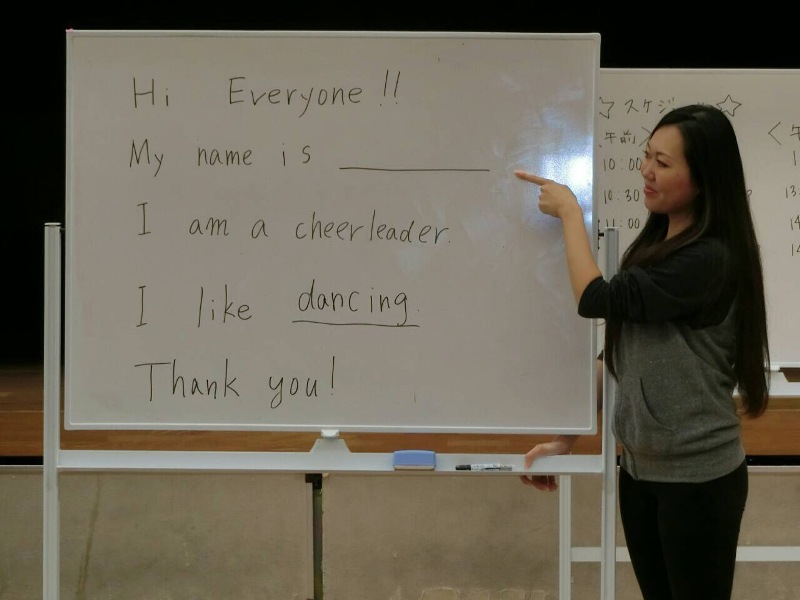 Hi Everyone!!
My name is ________
I am a cheerleader.
I like dancing.
Thank you!
☆スケジ ☆
午前
10:00
10:30
11:00